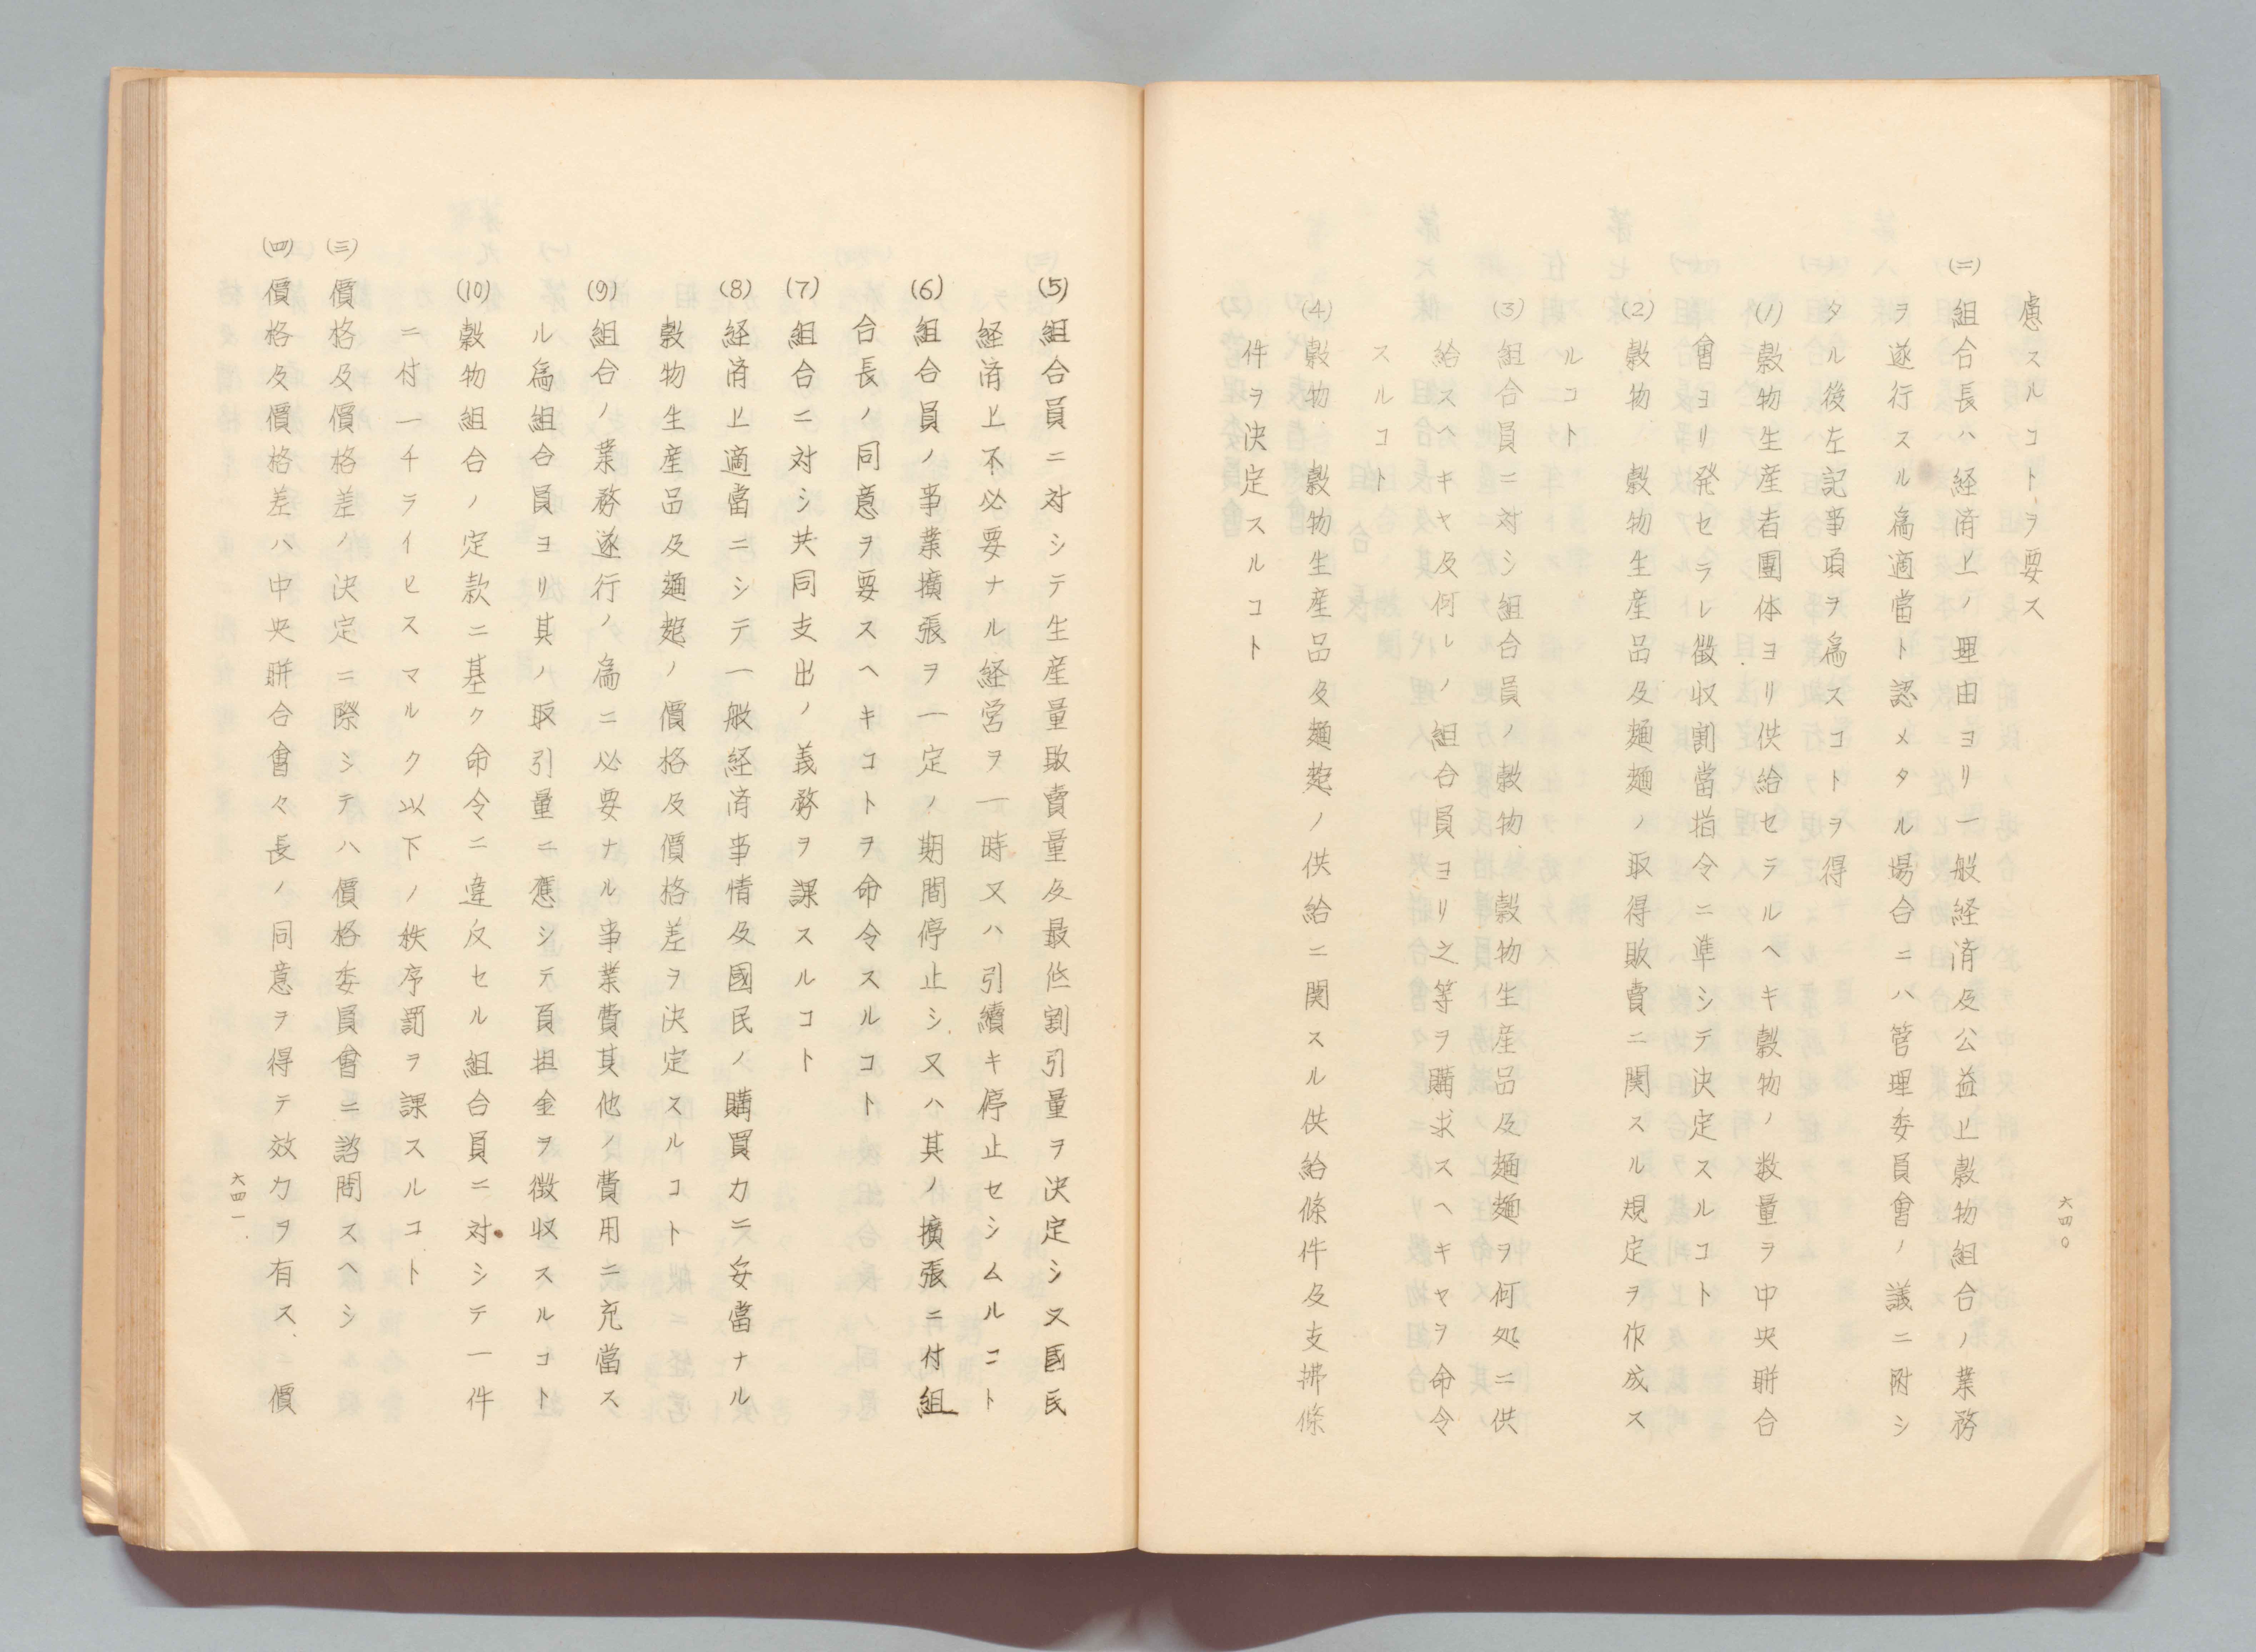 慮スルコトヲ要ス
(二)組合長ハ経済上ノ理由ヨリ一般経済及公益上穀物組合ノ業務
ヲ遂行スル為適當ト認メタル場合ニハ管理委員會ノ議ニ附シ
タル後左記事項ヲ為スコトヲ得
(1)穀物生産者團体ヨリ供給セラルヘキ穀物ノ数量ヲ中央聯合
會ヨリ発セラレ徴収割當指令ニ準シテ決定スルコト
(2)穀物、穀物生産品及麺麭ノ取得販賣ニ関スル規定ヲ作成ス
ルコト
(3)組合員ニ対シ組合員ノ穀物、穀物生産品及麺麭ヲ何処ニ供
給スヘキヤ及何レノ組合員ヨリ之等ヲ購求スヘキヤヲ命令
スルコト
(4)穀物、穀物生産品及麺麭ノ供給ニ関スル供給條件及支拂條
件ヲ決定スルコト
六四〇
(5)組合員ニ対シテ生産量販賣量及最低割引量ヲ決定シ又國民
経済上不必要ナル経営ヲ一時又ハ引續キ停止セシムルコト
(6)組合員ノ事業擴張ヲ一定ノ期間停止シ、又ハ其ノ擴張ニ付組
合長ノ同意ヲ要スヘキコトヲ命令スルコト
(7)組合ニ対シ共同支出ノ義務ヲ課スルコト
(8)経済上適當ニシテ一般経済事情及國民ノ購買力ニ妥當ナル
穀物生産品及麺麭ノ價格及價格差ヲ決定スルコト
(9)組合ノ業務遂行ノ為ニ必要ナル事業費其他ノ費用ニ充當ス
ル為組合員ヨリ其ノ取引量ニ應シテ負担金ヲ徴収スルコト
(10)穀物組合ノ定款ニ基ク命令ニ違反セル組合員ニ対シテ一件
ニ付一千ライヒスマルク以下ノ秩序罰ヲ課スルコト
(三)價格及價格差ノ決定ニ際シテハ價格委員會ニ諮問スヘシ
(四)價格及價格差ハ中央聯合會々長ノ同意ヲ得テ效力ヲ有ス、價
六四一